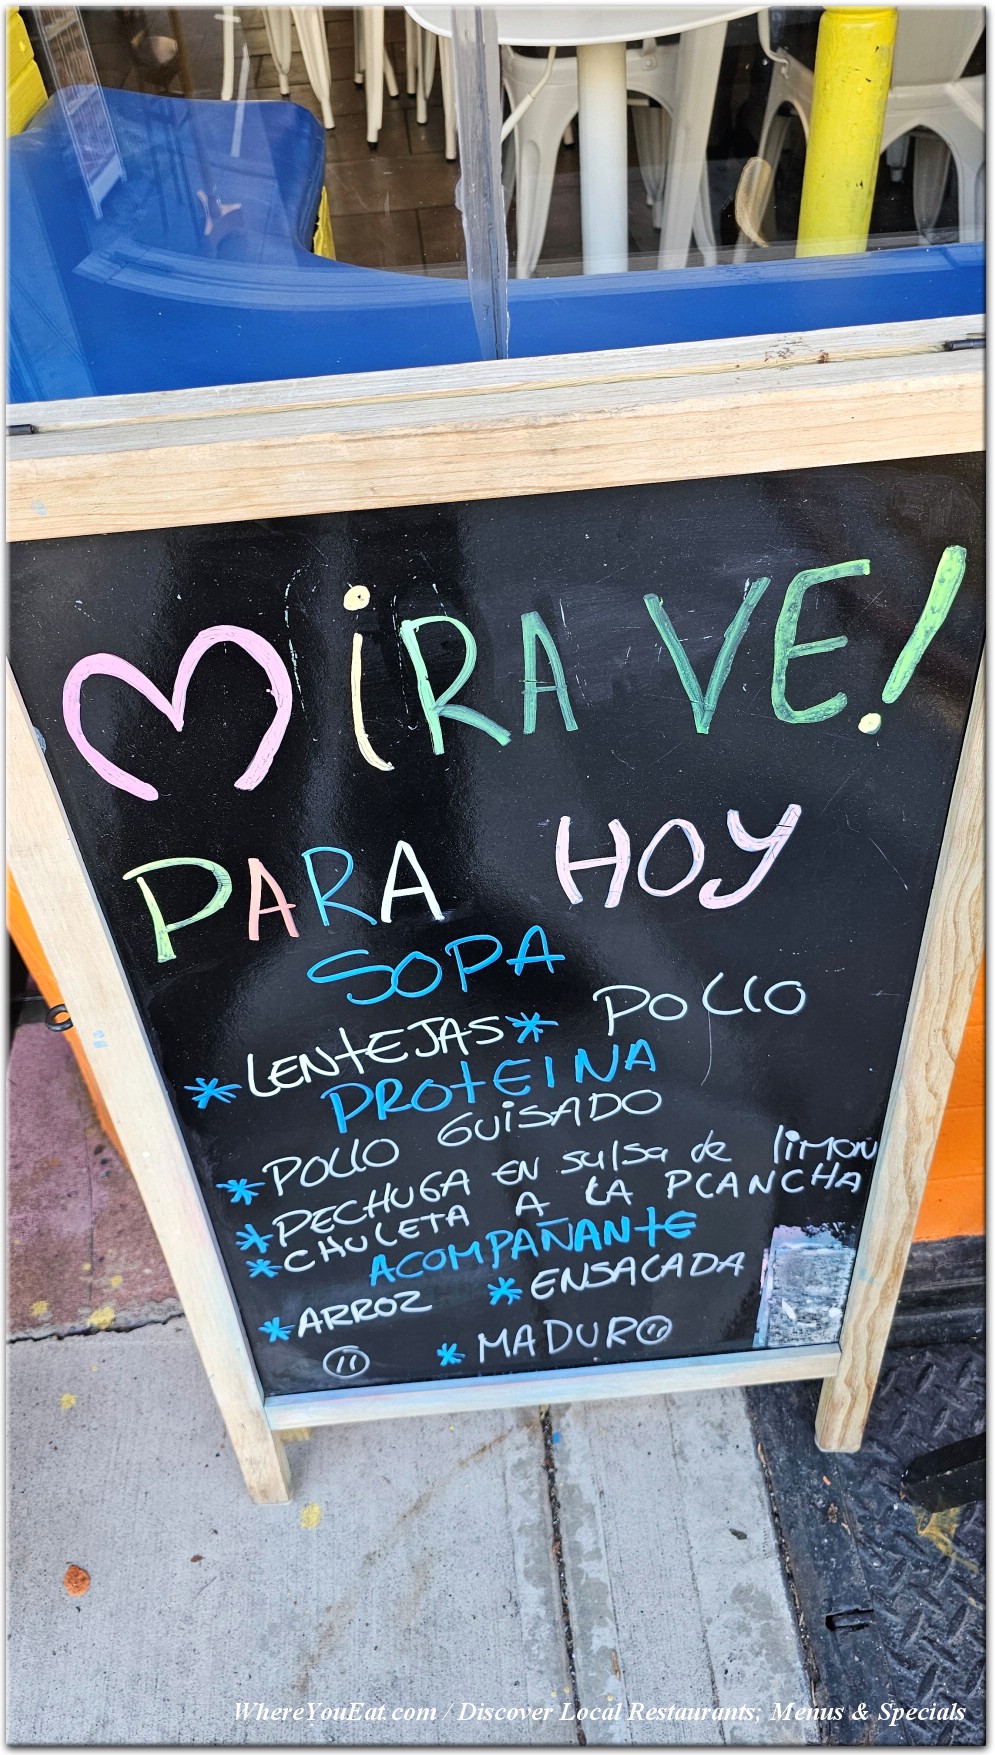 MiRA VE!
PARA HOY
SOPA
* LENTEJAS * POLLO
PROTEINA
* POLLO GUiSADO
* PECHUGA EN SalSa de liMON
* CHULETA A LA PLANCHA
ACOMPAÑANTE
* ARROZ * ENSALADA
* MADURO
WhereYouEat.com / Discover Local Restaurants; Menus & Specials